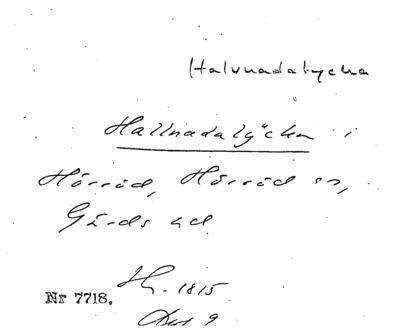 Halvnadalycka
Hallnadalyckan i
Hörröd, Hörröd sn,
Gärds hd
Nr 7718.
1815
9